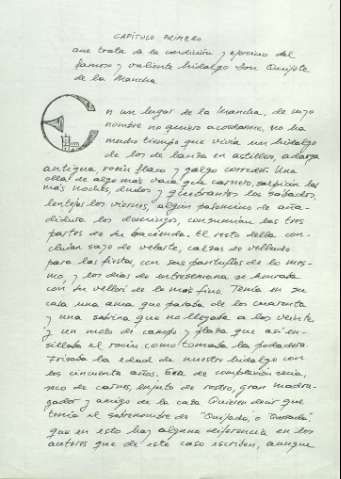 CAPÍTULO PRIMERO
que trata de la condición y ejercicio del
famoso y valiente hidalgo Don Quijote
de la Mancha
En un lugar de la Mancha, de cuyo
nombre no quiero acordarme, no ha
mucho tiempo que vivía un hidalgo
de los de lanza en astillero, adarga
antigua, rocín flaco y galgo corredor. Una
olla de algo más vaca que carnero, salpicón las
más noches, duelos y quebrantos los sábados,
lentejas los viernes, algún palomino de aña-
didura los domingos, consumían las tres
partes de su hacienda. El resto della con-
cluían sayo de velarte, calzas de velludo
para las fiestas, con sus pantuflos de lo mis-
mo, y los días de entresemana se honraba
con su vellorí de lo más fino. Tenía en su
casa una ama que pasaba de los cuarenta
y una sobrina que no llegaba a los veinte
y un mozo de campo y plaza que así en-
sillaba el rocín como tomaba la podadera.
Frisaba la edad de nuestro hidalgo con
los cincuenta años. Era de complexión recia,
seco de carnes, enjuto de rostro, gran madru-
gador y amigo de la caza. Quieren decir que
tenía el sobrenombre de "Quijada", o "Quesada",
que en esto hay alguna diferencia en los
autores que de este caso escriben, aunque